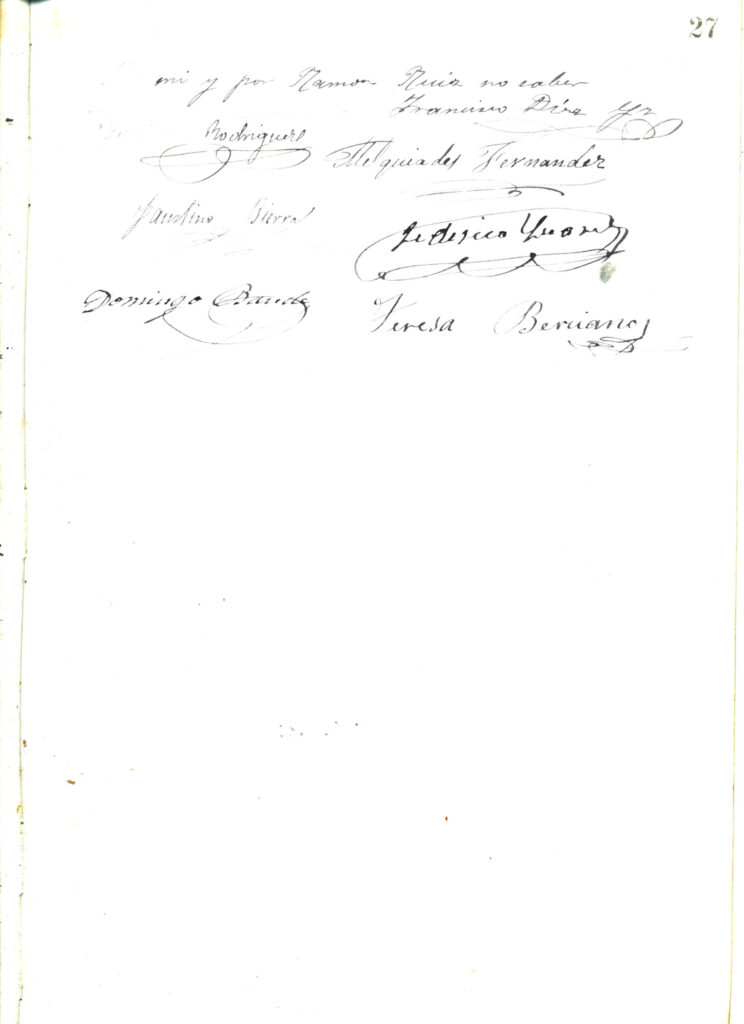 27
mi y por Ramon Ruiz no saber
Francisco Díez
Rodriguez
Melquiades Fernandez
Faustino Sierra
Federico Suarez
Domingo Bande
Teresa Bercianos